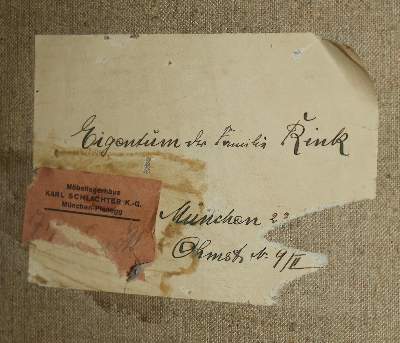 Eigentum der Familie Rink
Möbellagerhaus
KARL SCHLACHTER K.-G.
München-Planegg
München 23
Ohmstr. Nr. 4/II